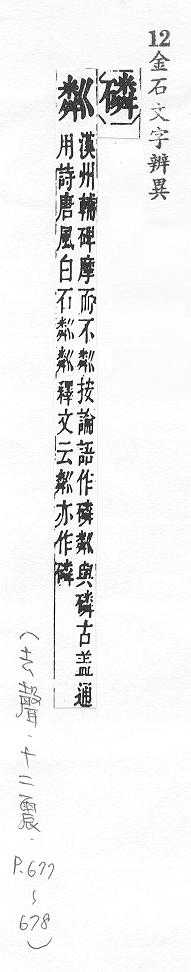 12金石文字辨異
磷
粼
漢州輔碑摩而不粼按論語作磷粼與磷古盖通
用詩唐風白石粼粼釋文云粼亦作磷
(去聲.十二震.P.677~678)